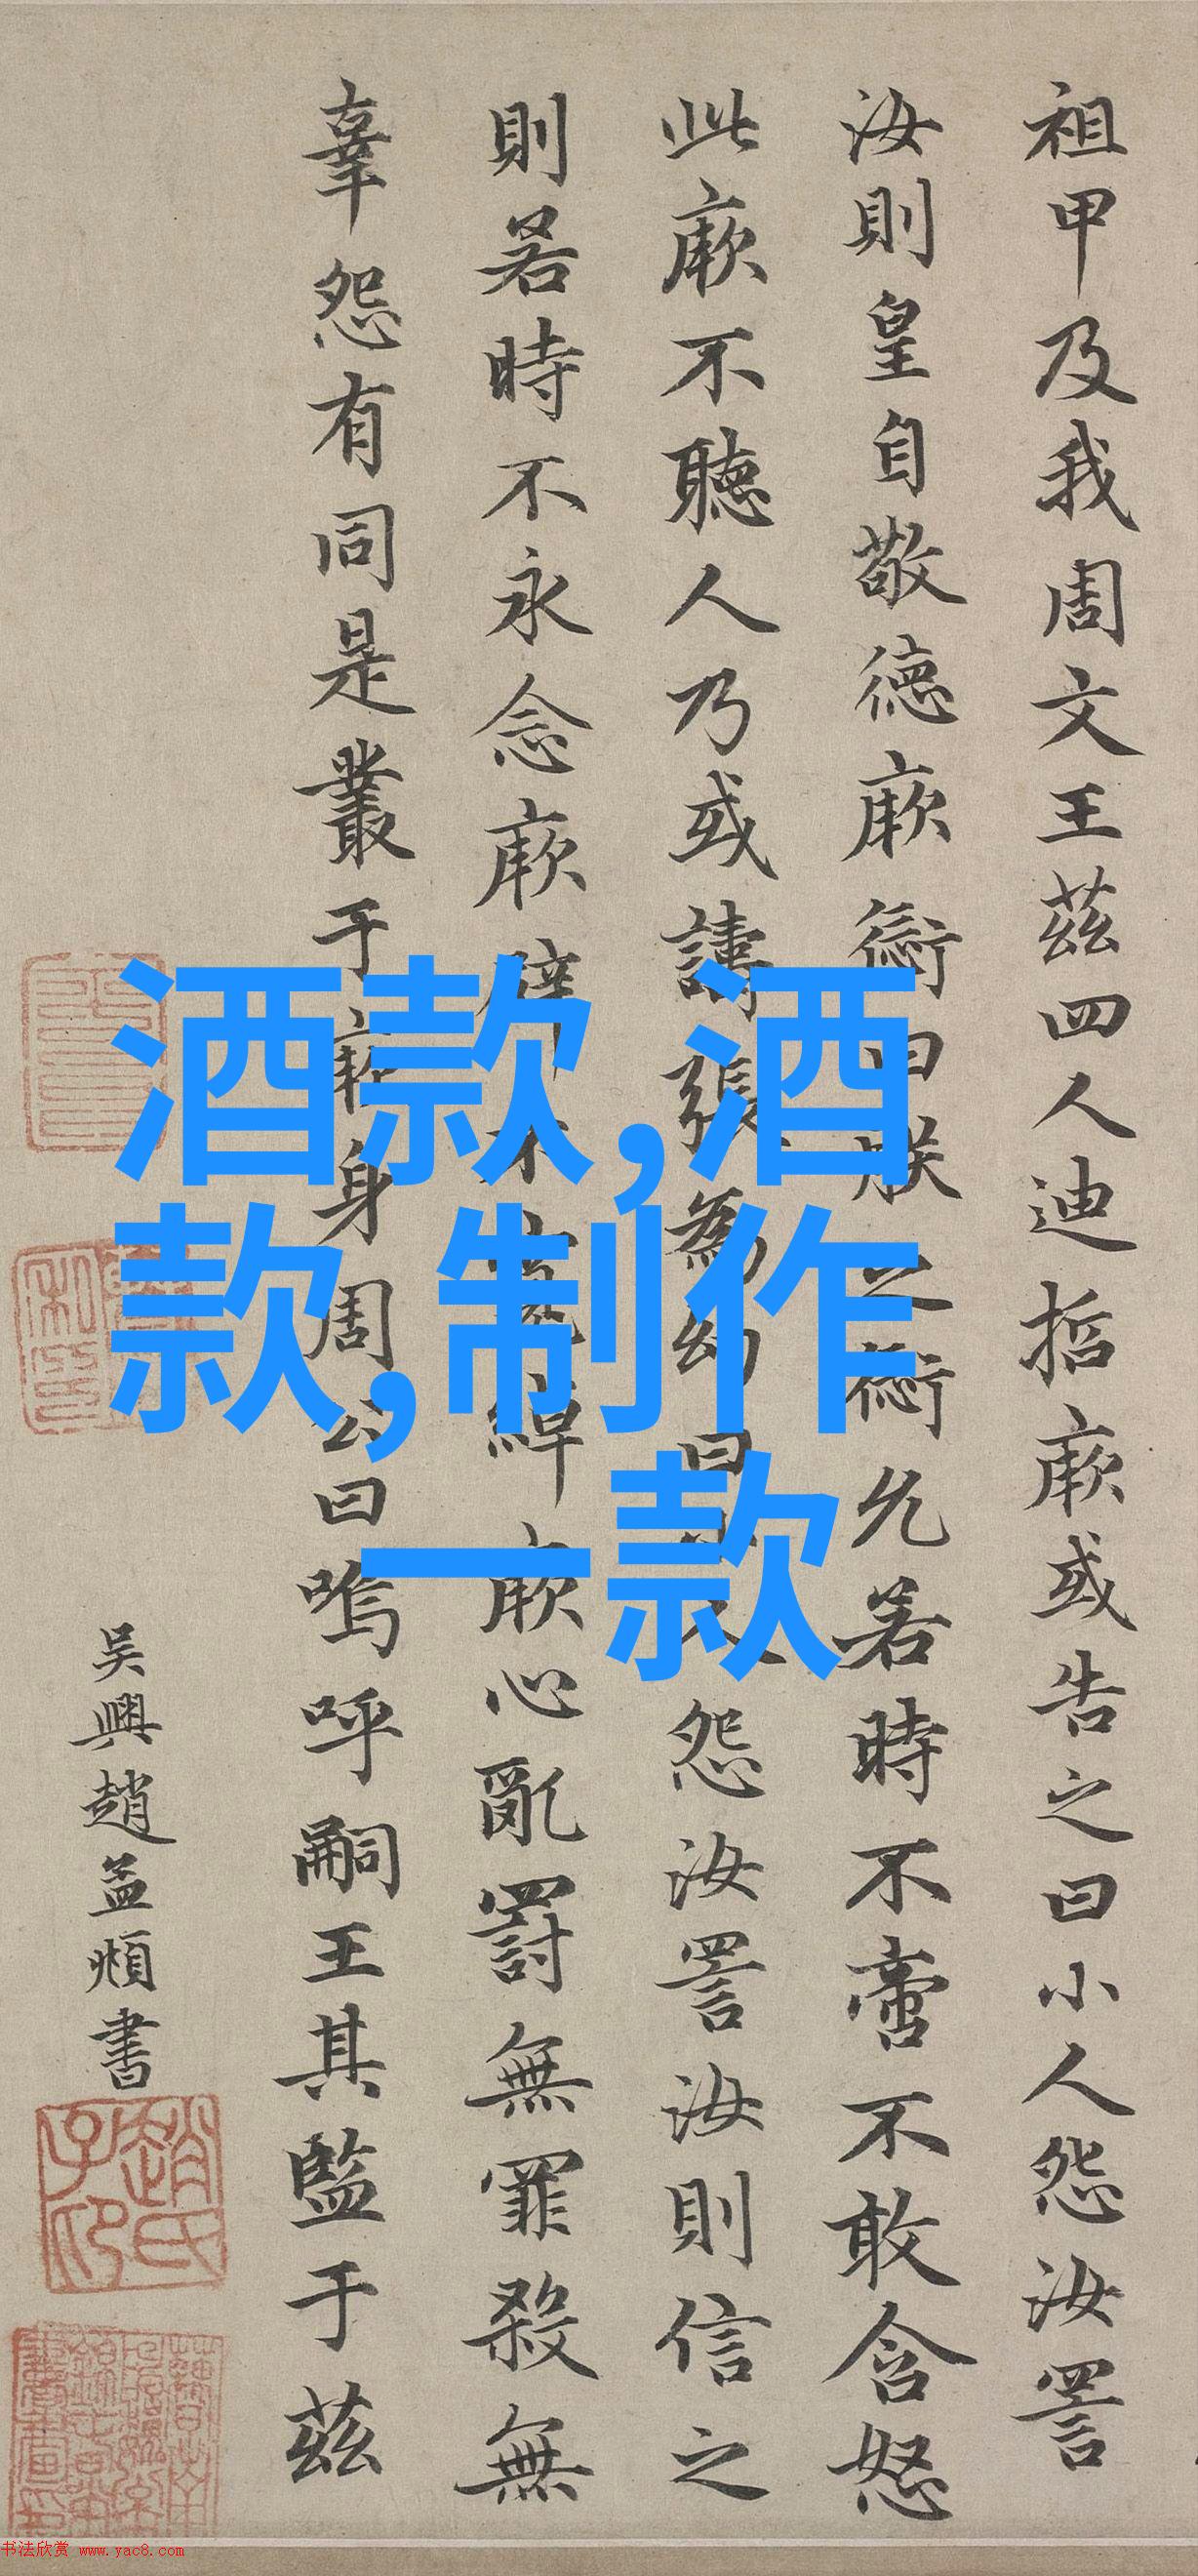 祖甲及我周文王茲四人迪哲厥或告之曰小人怨汝詈
汝則皇自敬德厥愆曰朕之愆允若時不啻不敢含怒
此厥不聽人乃或譸張為幻曰小人怨汝詈汝則信之
則若時不永念厥辟不寬綽厥心亂罰無罪殺無
辜怨有同是叢于厥身周公曰嗚呼嗣王其監于茲
吳興趙孟頫書
趙氏子印
酒款,酒
款,制作
一款
书法欣赏 www.yac8.com